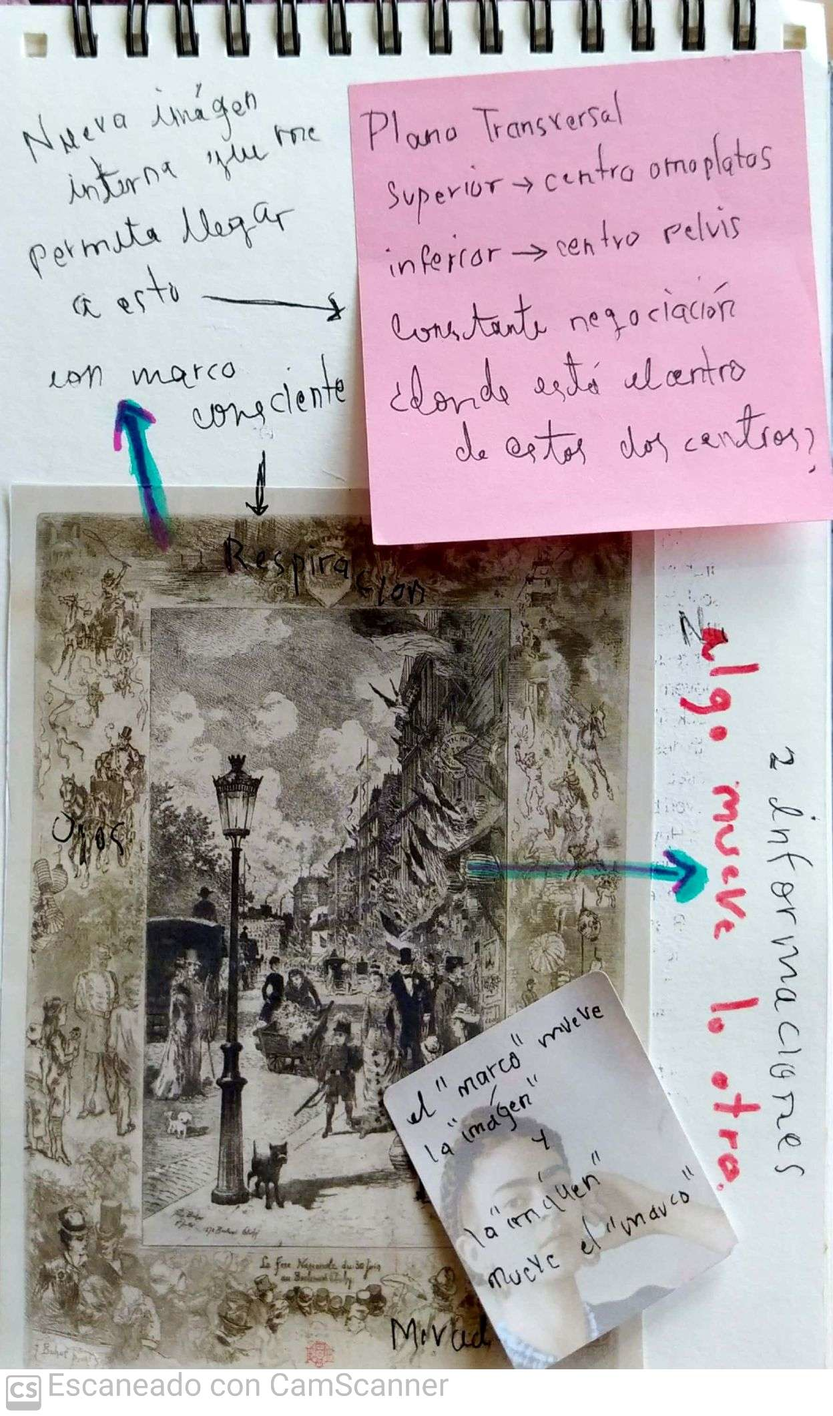 Nueva imágen
interna que me
permita llegar
a esto
con marco
consciente
Plano Transversal
superior → centro omoplatos
inferior → centro pelvis
constante negociación
¿donde está el centro
de estos dos centros?
Respiración
Ojos
algo mueve lo otro.
2 informaciones
el "marco" mueve
la "imágen"
y
la "imágen"
mueve el "marco"
La Fete Nationale du 30 Juin
au Boulevard Clichy
CS Escaneado con CamScanner